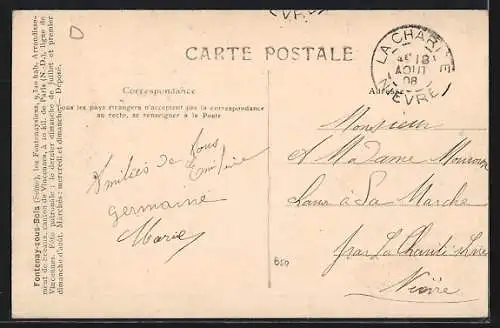 CARTE POSTALE
Correspondance
Tous les pays étrangers n'acceptent pas la correspondance
au recto, se renseigner à la Poste
Adresse
LA CHARITÉ
18
AOUT
08
NIÈVRE
Fontenay-sous-Bois (Seine), les Fontenaysiens, 9,320 hab. Arrondisse-
ment de Sceaux, canton de Vincennes, à 10 kil. de Paris (N.-D.), ligne de
Vincennes. Fête patronale : le dernier dimanche de juillet et premier
dimanche d'août. Marchés : mercredi et dimanche. — Déposé.
Amitiés de tous
Emilie
germaine
Marie
Monsieur
et Madame
à La Marche
par La Charité s/Loire
Nièvre